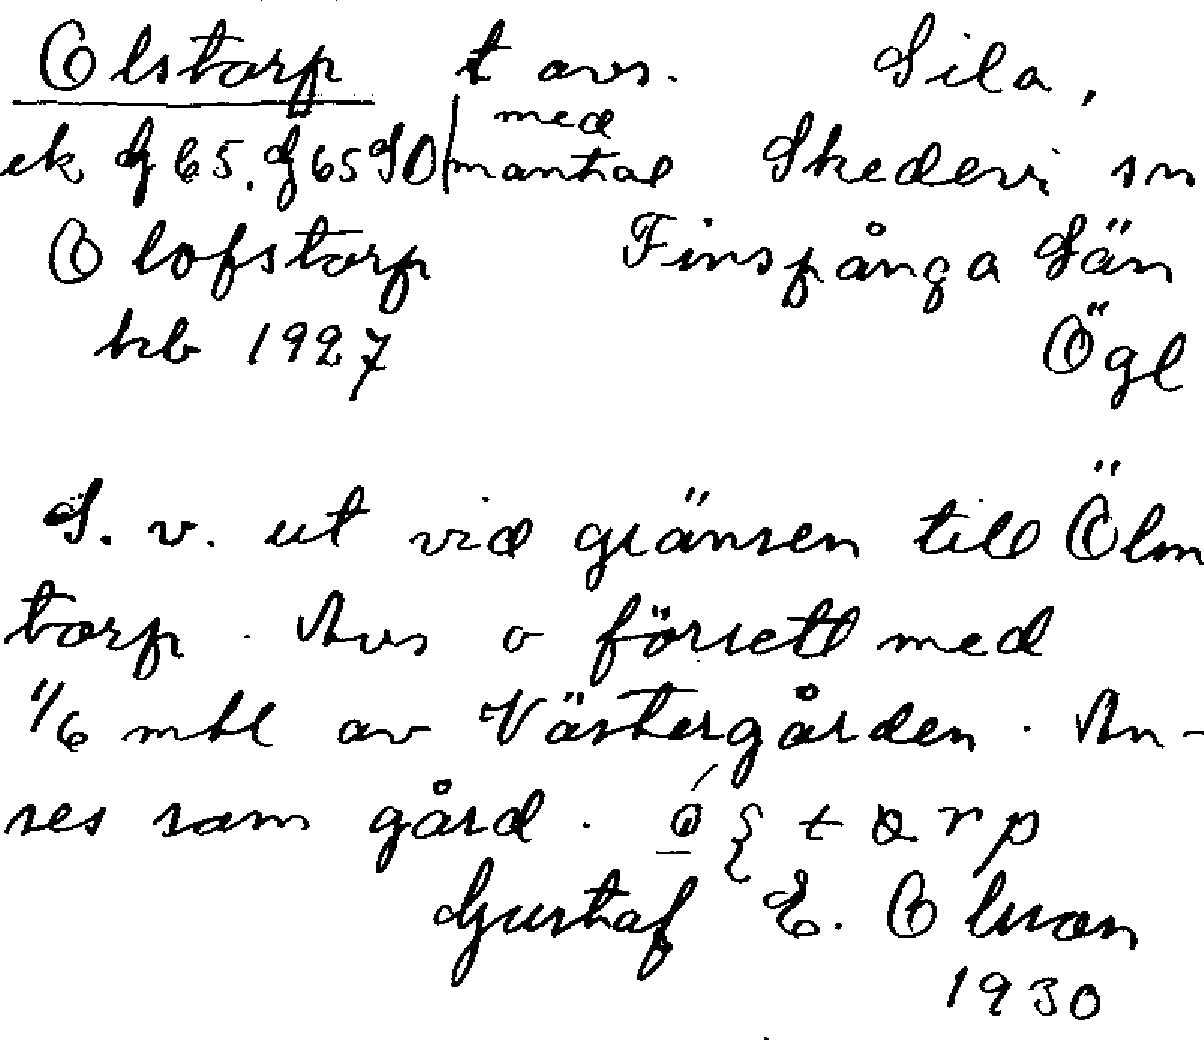 Olstorp t avs. Sila,
ek G 65. G 65 SO / med mantal Skedevi sn
Olofstorp Finspånga Län
kb 1927 Ögl
S. v. ut vid gränsen till Ölm
torp. Avs o försett med
1/6 mtl av Västergården. An-
ses som gård.
Gustaf E. Olsson
1930